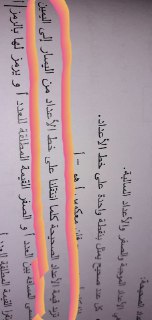 الصحيحة:
الموجبة والصفر والأعداد السالبة.
كل عدد صحيح يمثل بنقطة وحيدة على خط الأعداد.
فإن معكوس أ هو – أ
زاد قيمة الأعداد الصحيحة كلما انتقلنا على خط الأعداد من اليسار إلى اليمين
المسافة بين العدد أ و الصفر القيمة المطلقة للعدد أ و يرمز لها بالرمز |أ
القيمة المطلقة